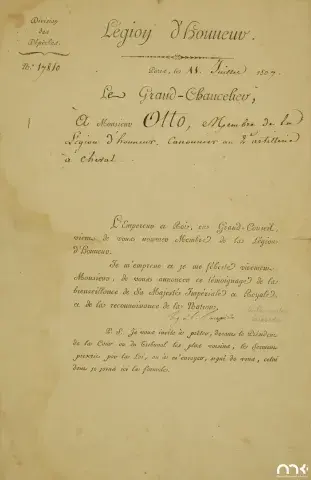 Division
des
Dépêches.
N.º 17810
Légion d'honneur.
Paris, le 11 Juillet 1807
Le Grand-Chancelier,
A Monsieur Otto, Membre de la
Légion d'honneur, Canonnier au 2e artillerie
à cheval
L'Empereur et Roi, en Grand-Conseil,
vient de vous nommer Membre de la Légion
d'Honneur.
Je m'empresse et je me félicite vivement,
Monsieur, de vous annoncer ce témoignage de la
bienveillance de Sa Majesté Impériale et Royale,
et de la reconnaissance de la Nation.
P. S. Je vous invite à prêter, devant le Président
de la Cour ou du Tribunal le plus voisin, le serment
prescrit par la loi, et à m'envoyer, signé de vous, celui
dont je joins ici la formule.